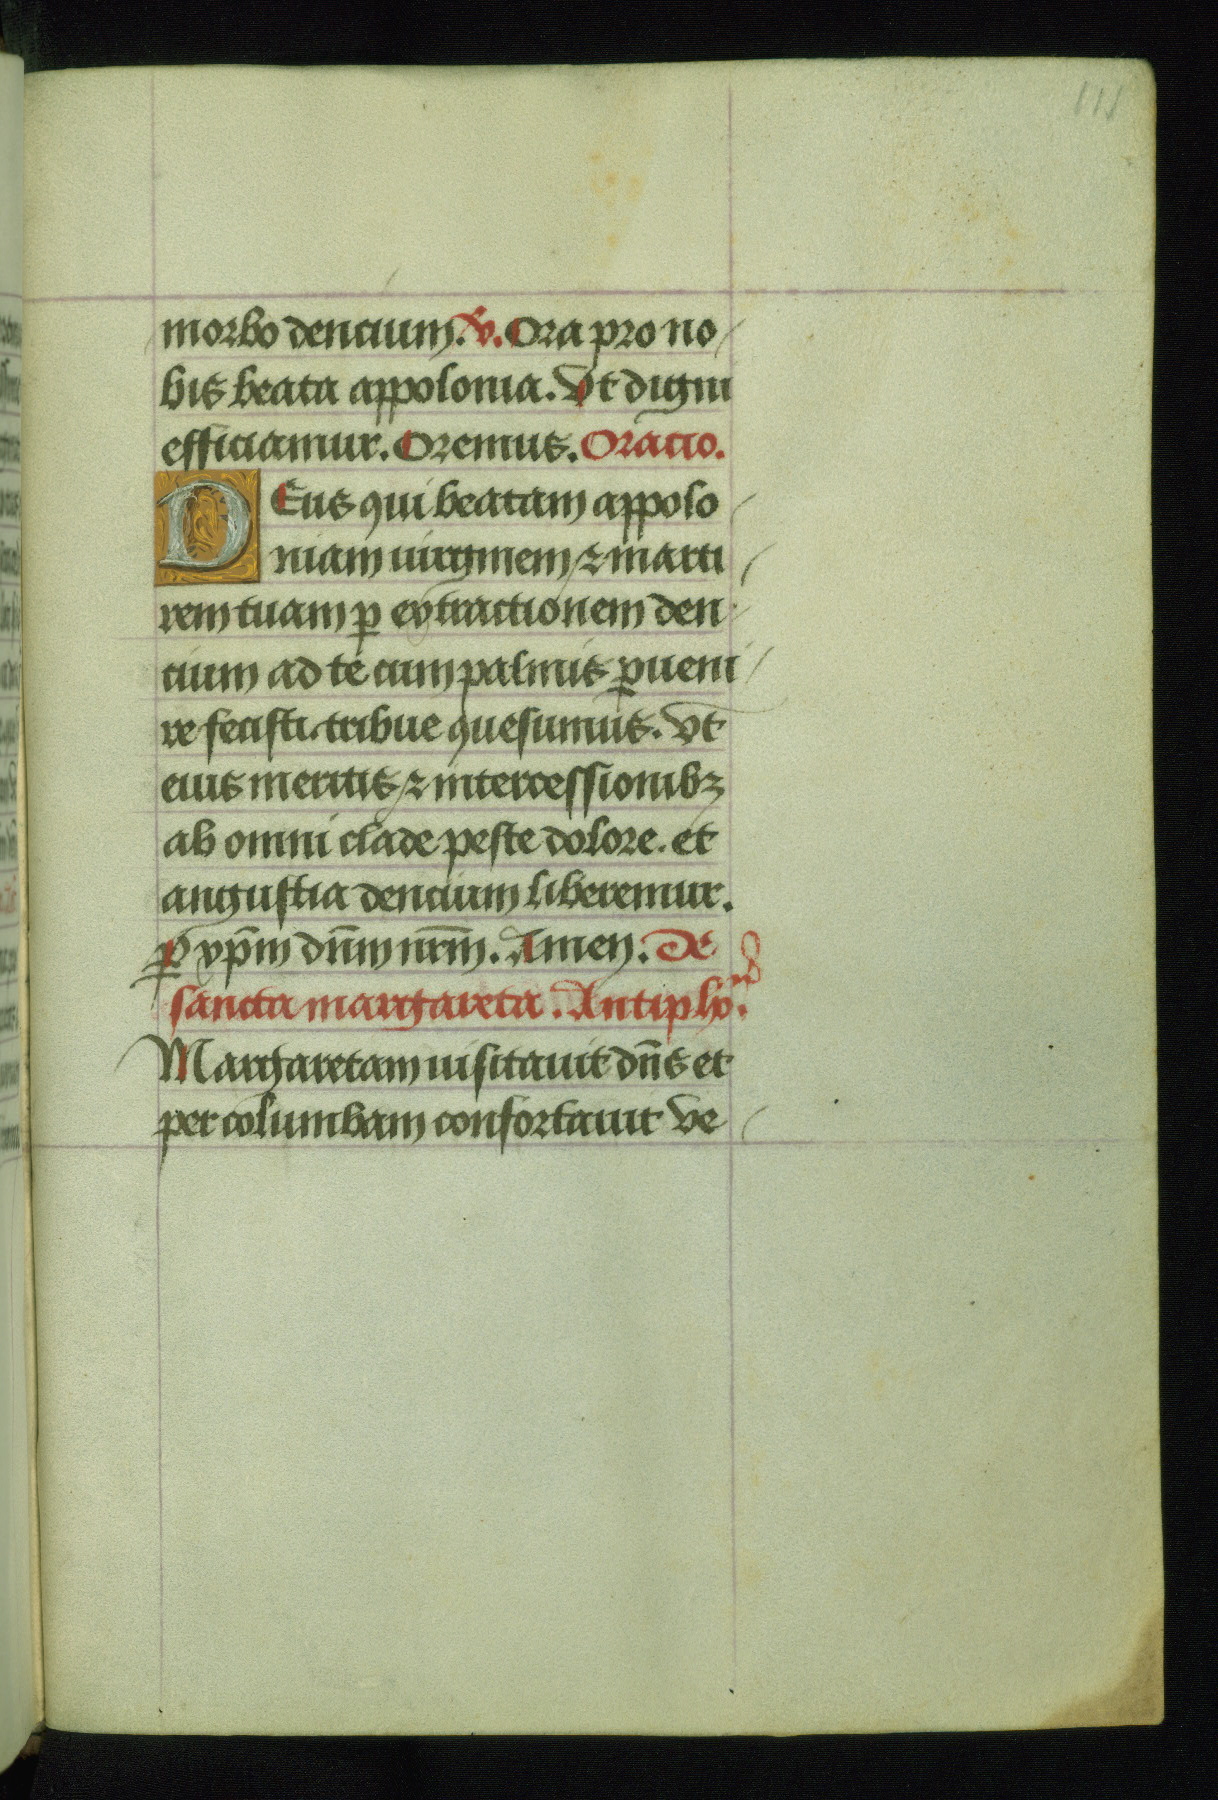 111
morbo dencium. v. Ora pro no/
bis beata appolonia. Vt digni
efficiamur. Oremus. Oracio.
DEus qui beatam appolo/
niam uirginem ⁊ marti/
rem tuam ꝑ extractionem den/
cium ad te cum palmis ꝑueni/
re fecisti. tribue quesumus. Vt
eius meritis ⁊ intercessionibꝫ
ab omni clade peste dolore. et
angustia dencium liberemur.
ꝑ xp̄m dn̄m nr̄m. Amen. De
sancta margareta. Antipho.
Margaretam uisitauit dn̄s et
per columbam confortauit ve/